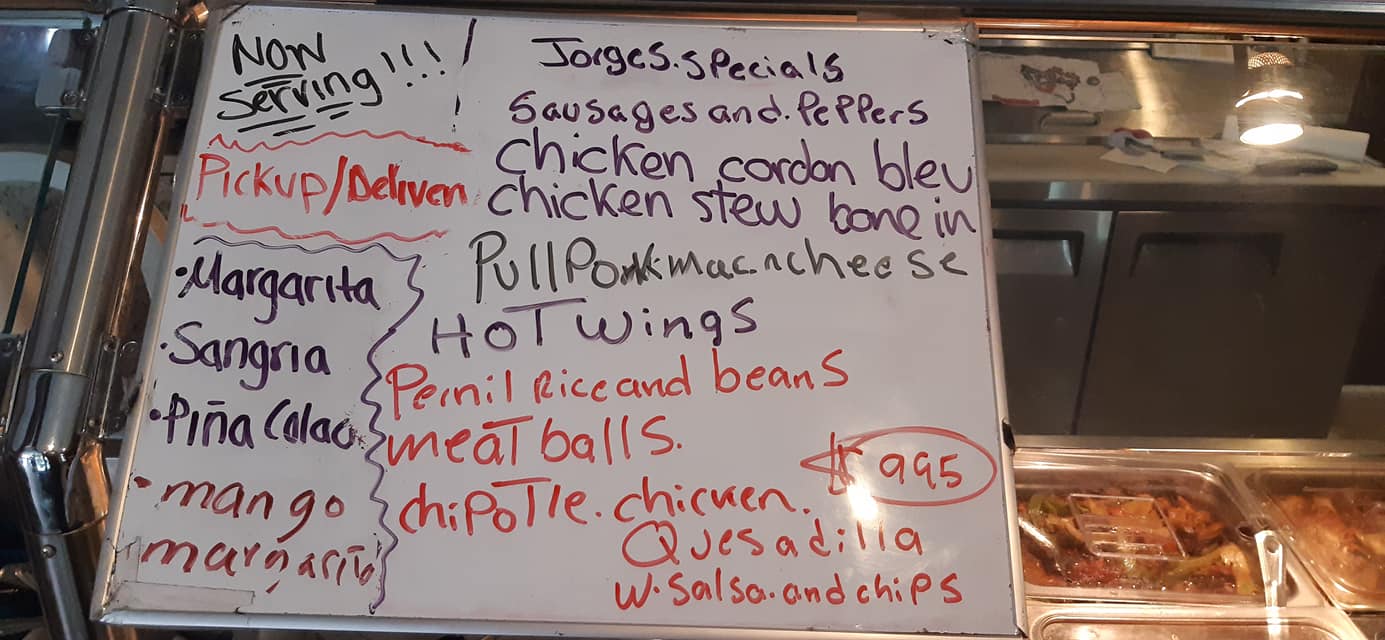 NOW
Serving!!!
Pickup/Deliven
• Margarita
• Sangria
• Piña Colad
• mango
margarita
Jorges.specials
Sausages and.Peppers
chicken cordon bleu
chicken stew bone in
Pull Pork mac.ncheese
HOT wings
Pernil Rice and beans
meat balls.
$ 995
chipotle.chicken.
Quesadilla
w.salsa.and chips